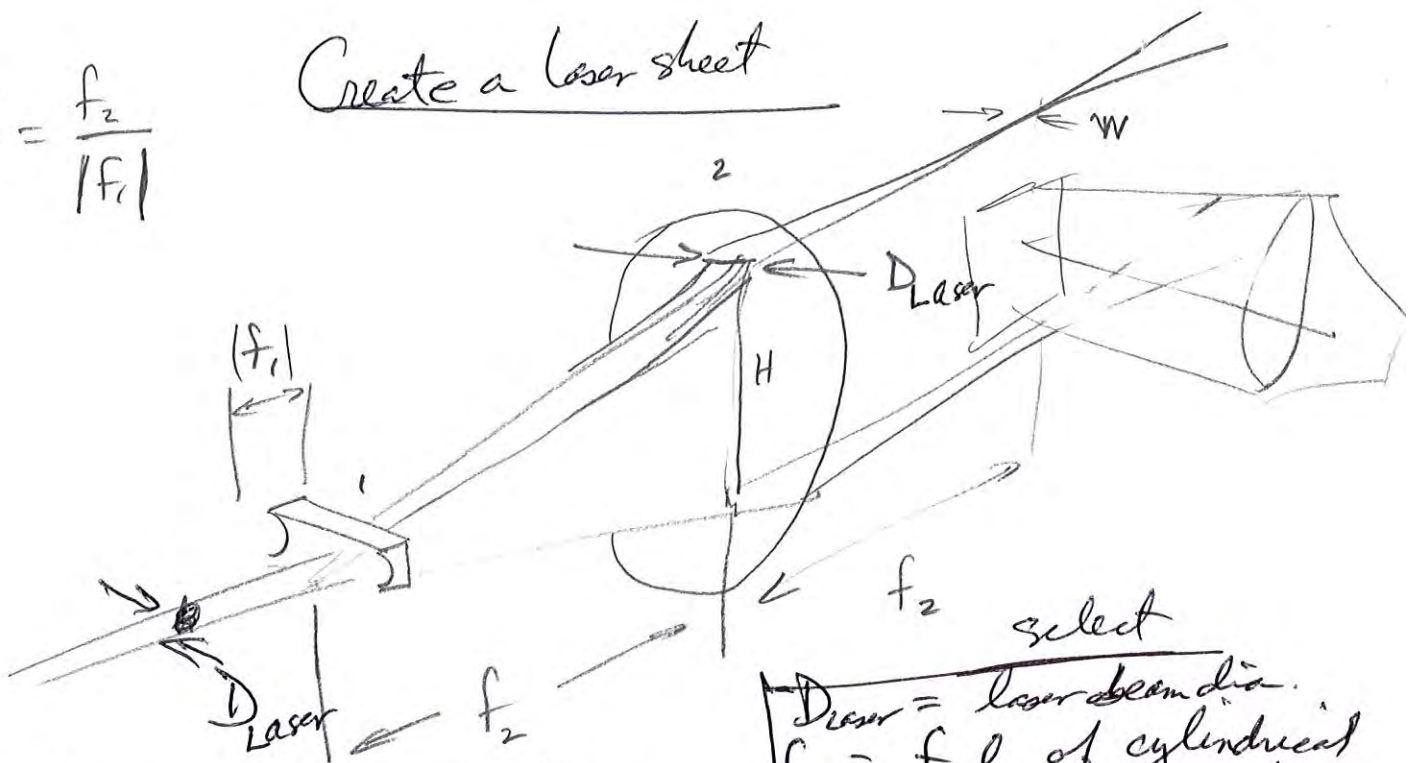 Create a laser sheet
= f₂ / |f₁|
W
2
D Laser
|f₁|
H
1
f₂
D Laser
f₂
select
D Laser = laser beam dia.
f₁ = f.l. of cylindrical